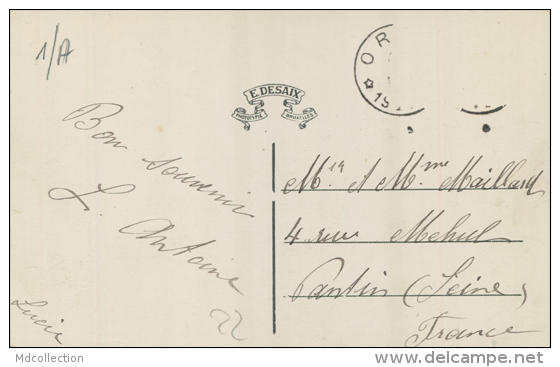 1/A
E. DESAIX
PHOTOTYPIE BRUXELLES
OR
19
Bon souvenir
L. Antoine
Lucie
22
Mr et Mme Maillard
4 rue Mehul
Pantin (Seine)
France
Mdcollection
www.delcampe.net